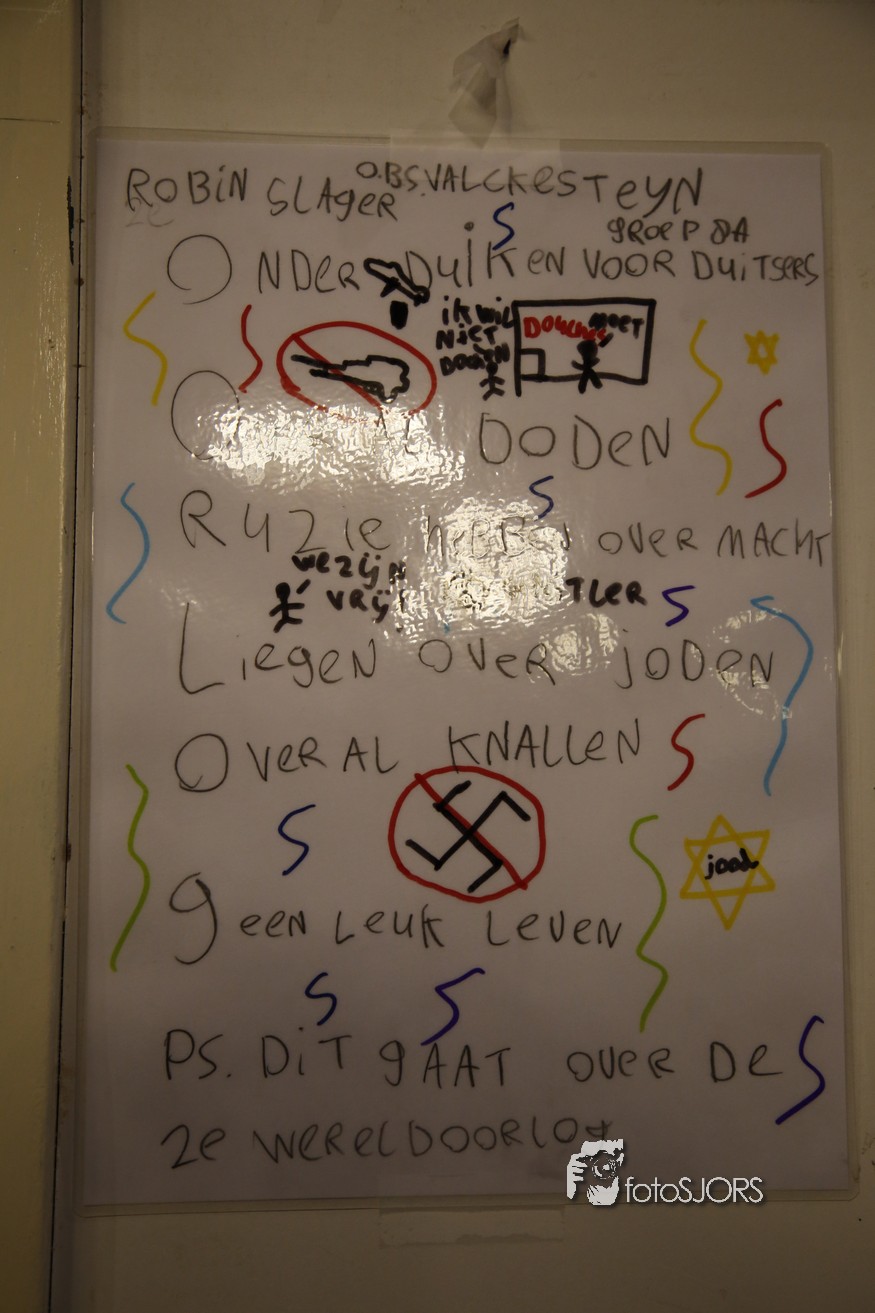 ROBIN SLAGER O.B.S. VALCKESTEYN
groep 8A
ONDERDUIKEN VOOR DUITSERS
ik wil niet
DOUCHES MOET
O DODEN
RUZIE HEBBEN OVER MACHT
we zijn
vrij!
LIEGEN OVER JODEN
OVERAL KNALLEN
jood
gEEN LEUK LEVEN
PS. DIT gAAT OVER DE
2e WERELDOORLOg
fotoSJORS